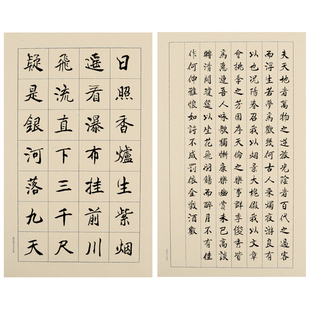 日照香爐生紫烟
遥看瀑布挂前川
飛流直下三千尺
疑是銀河落九天
夫天地者萬物之逆旅光陰百代之過客
而浮生若夢爲歡幾何古人秉燭夜游良有
以也况陽春召我以烟景大塊假我以文章
會桃李之芳園序天倫之樂事群季俊秀皆
爲惠連吾人咏歌獨慚康樂幽賞未已高談
轉清開瓊筵以坐花飛羽觴而醉月不有佳
作何伸雅懷如詩不成罰依金穀酒數